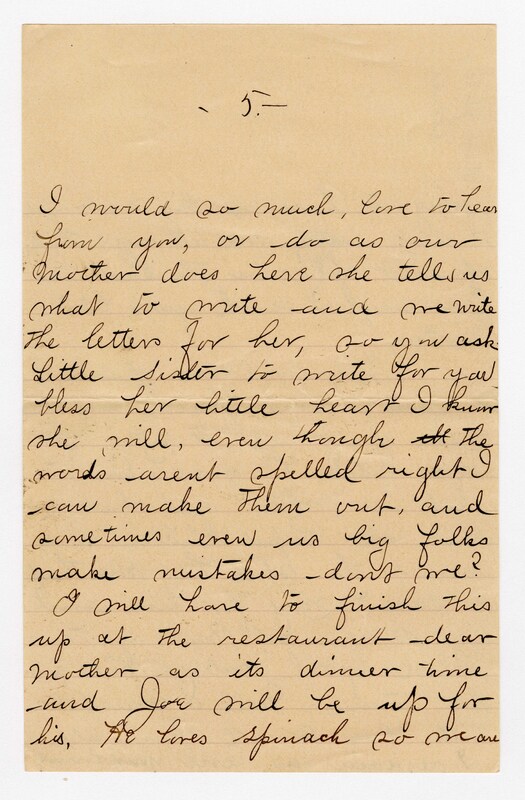 - 5. -
I would so much, love to hear
from you, or do as our
Mother does here she tells us
what to write and we write
the letters for her, so you ask
Little sister to write for you
bless her little heart I know
she will, even though the
words arent spelled right I
can make them out, and
sometimes even us big folks
make mistakes dont we?
I will have to finish this
up at the restaurant dear
Mother as its dinner time
and Joe will be up for
his, He loves spinach so we are